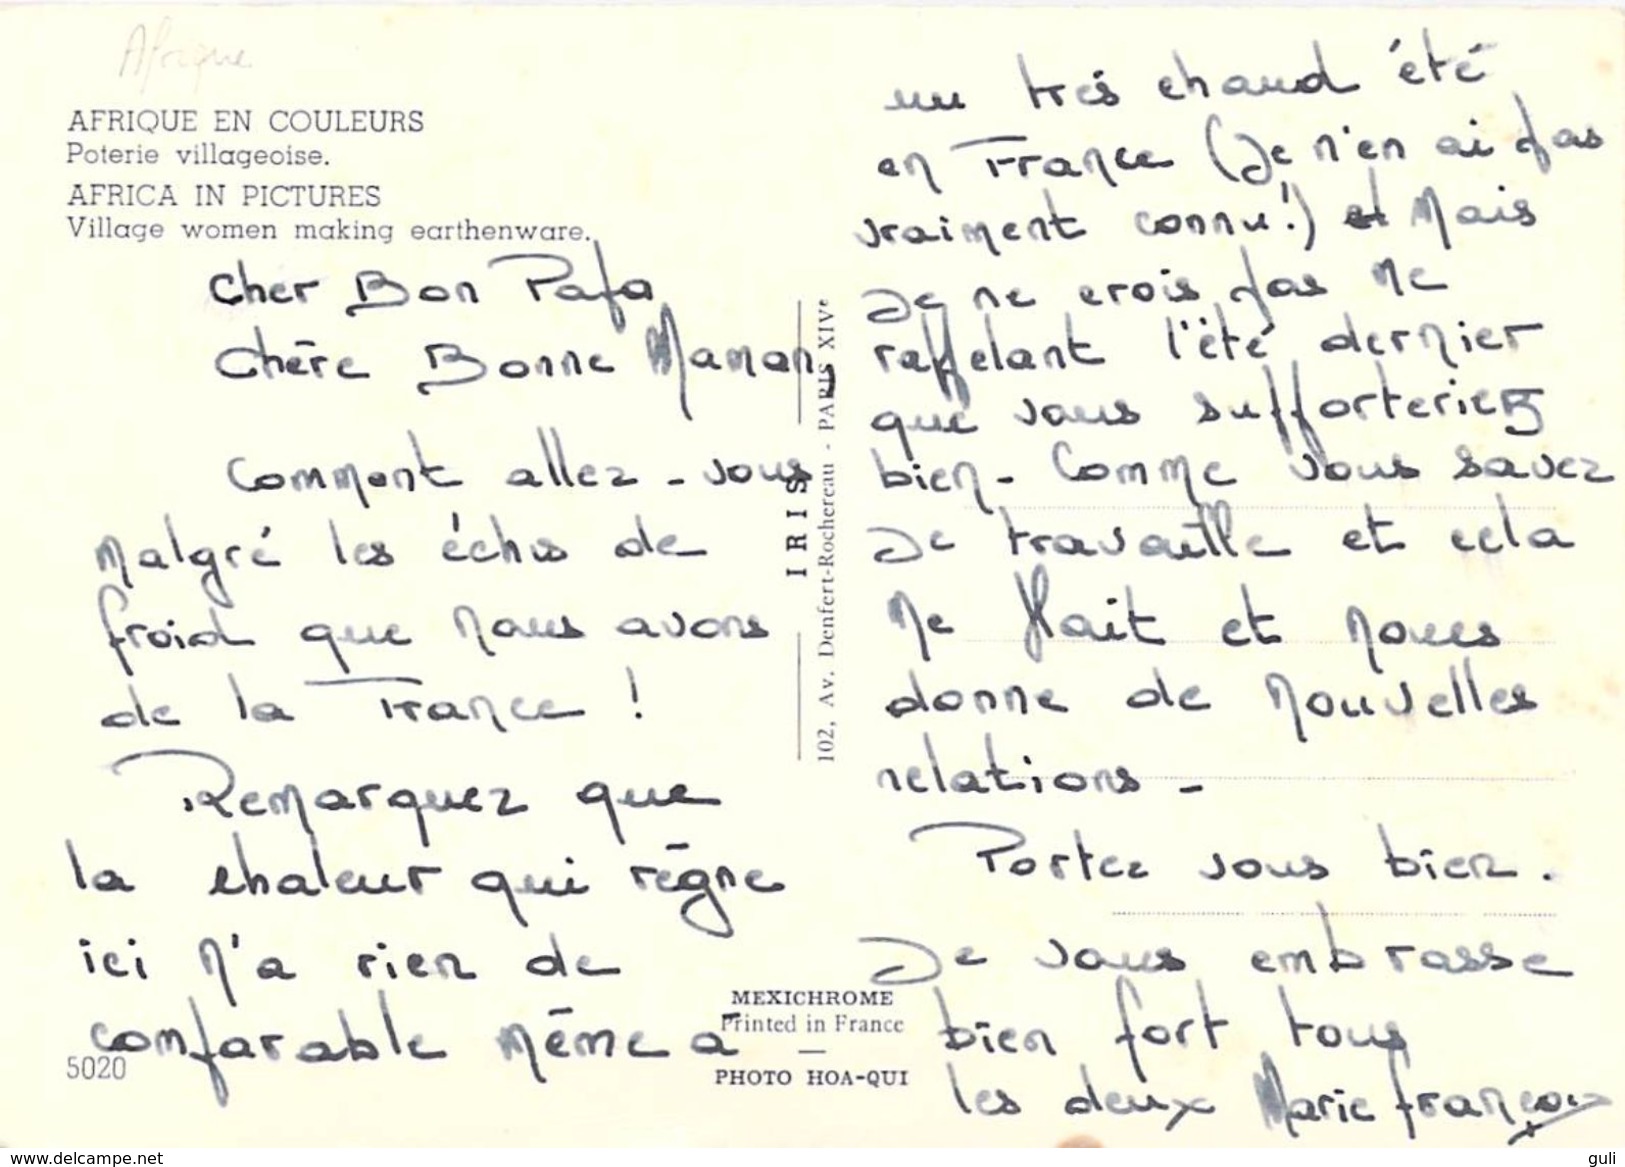 Afrique
AFRIQUE EN COULEURS
Poterie villageoise.
AFRICA IN PICTURES
Village women making earthenware.
Cher Bon Papa
Chère Bonne Maman,
Comment allez-vous
malgré les échos de
froid que nous avons
de la France !
Remarquez que
la chaleur qui règne
ici n'a rien de
comparable même à
5020
IRIS
102, Av. Denfert-Rochereau - PARIS XIVe
MEXICHROME
Printed in France
PHOTO HOA-QUI
un très chaud été
en France (Je n'en ai pas
vraiment connu !) et Mais
Je ne crois pas me
rappelant l'été dernier
que vous supporteriez
bien - Comme vous savez
Je travaille et cela
me plait et nous
donne de nouvelles
relations -
Portez vous bien.
Je vous embrasse
bien fort tous
les deux Marie françoise
delcampe.net
guli